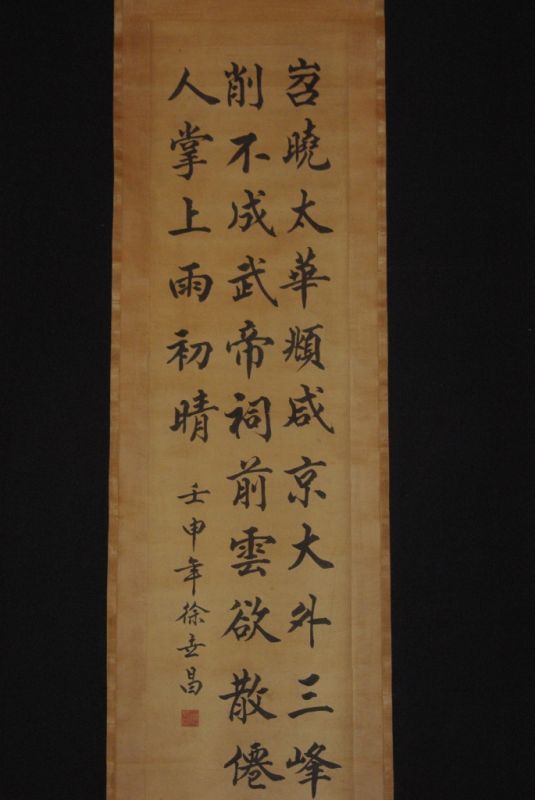 岧曉太華頫咸京大外三峰
削不成武帝祠前雲欲散僊
人掌上雨初晴
壬申年徐世昌